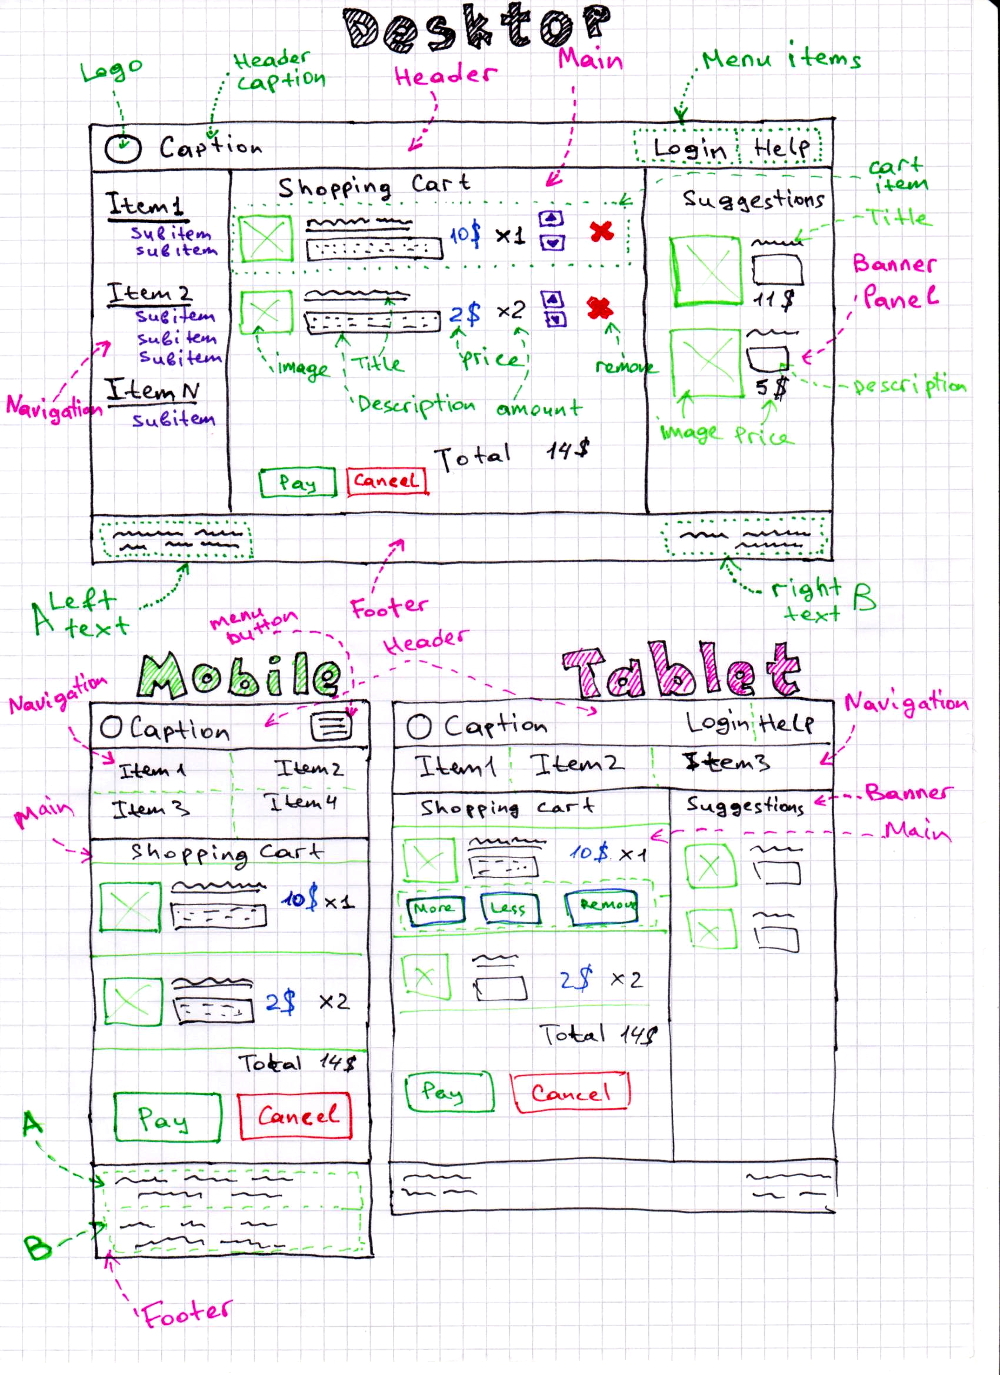 Desktop
Logo
Header
caption
Header
Main
Menu items
Caption
Login
Help
Shopping Cart
cart
item
Item1
subitem
subitem
10$ ×1
Suggestions
Title
11$
Banner
Panel
Item 2
subitem
subitem
subitem
2$ ×2
image
Title
price
remove
Description
amount
5$
Description
image
price
Navigation
Item N
subitem
Total 14$
Pay
Cancel
A Left
text
Footer
right B
text
menu
button
Header
Mobile
Navigation
Caption
Item1
Item2
Item 3
Item4
Main
Shopping Cart
10$ ×1
2$ ×2
Total 14$
Pay
Cancel
A
B
Footer
Tablet
Navigation
Caption
Login Help
Item1
Item2
Item3
Shopping cart
Suggestions
Banner
Main
10$ ×1
More
Less
Remove
2$ ×2
Total 14$
Pay
Cancel